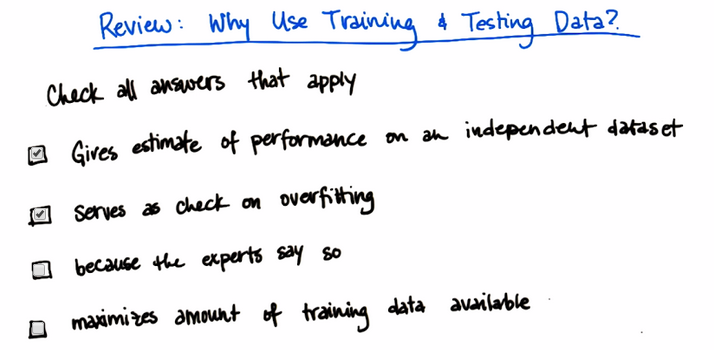 Review: Why Use Training & Testing Data?
Check all answers that apply
Gives estimate of performance on an independent dataset
serves as check on overfitting
because the experts say so
maximizes amount of training data available